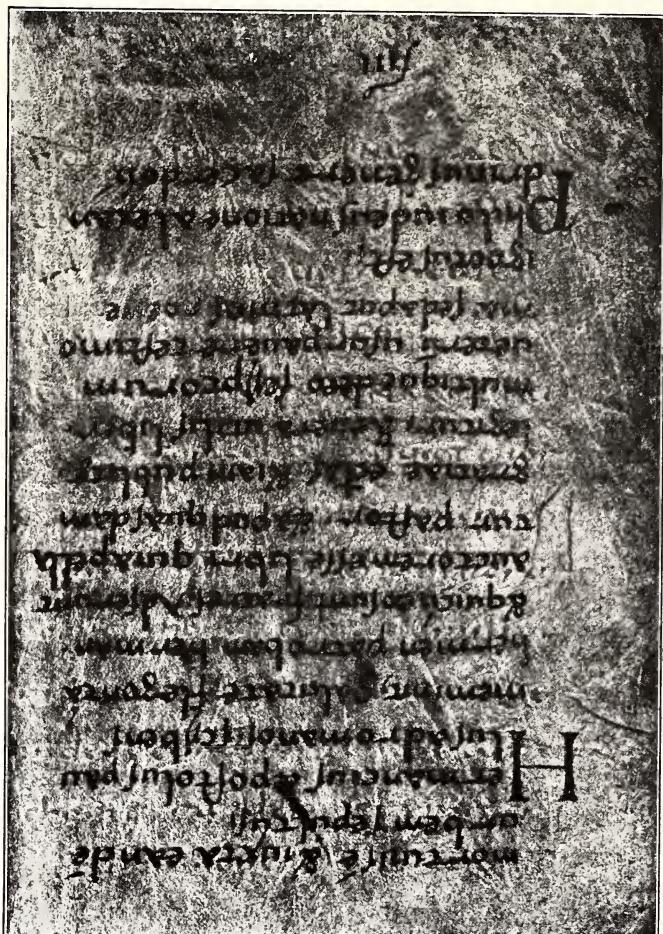 mortuus ē &iuxta eandē
urbem sepultus
Hermancuius apostolus pau
lus adromanos scribens
meminit salutate flegonta
hermen patroban herman
&quicūeis sunt fratres Asserunt
auctorem esse libri quiapella
tur pastor & apud quasdam
graeciae eccles &iam publicae
legitur Reuera utilis liber
multique deeo scriptorum
ueterū usurpauere testimo
nia sed apud latinos poene
ignotus est
Philo iudeus natione alexan
drinus genere sacerdotū